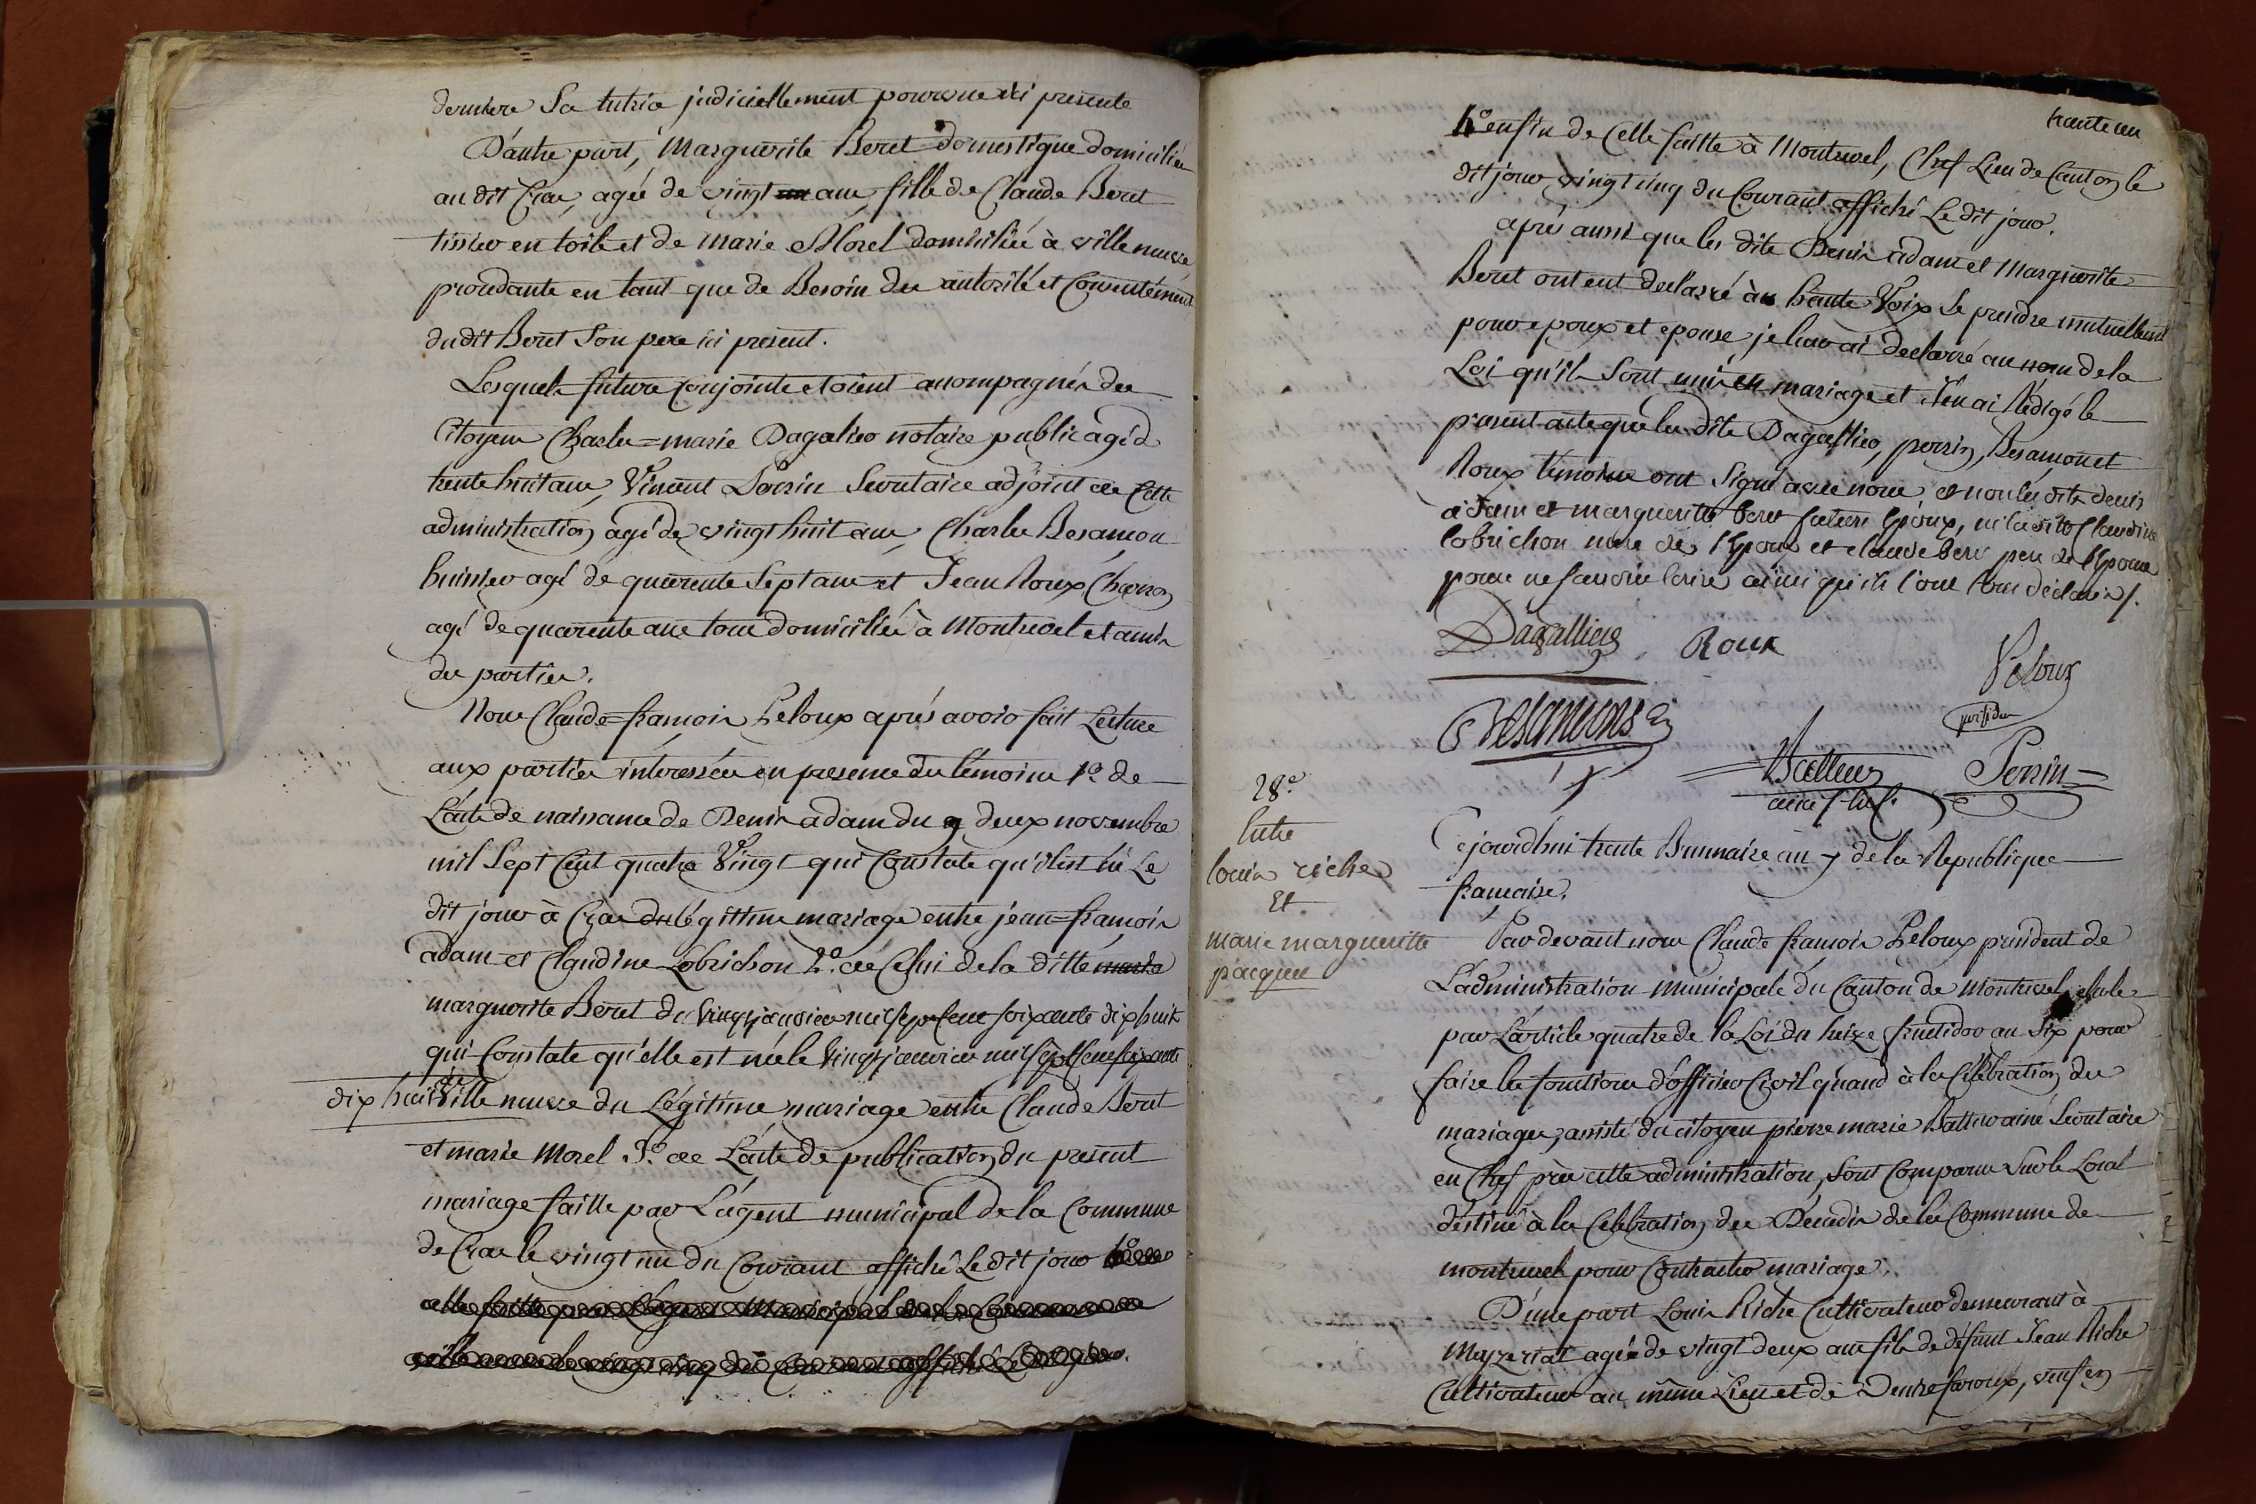 derniere Sa tutrice judiciellement pourvue ici presente
D'autre part, Marguerite Beret domestique domiciliée
au dit Cras, agée de vingt ans, fille de Claude Beret
tissier en toile et de Marie Morel domiciliée à villeneuve
procedante en tant que de Besoin des autorité et Consentement
du dit Beret Son pere ici present.
Lesquels futurs Conjoints etoient accompagnés des
Citoyens Charles=marie Dagallier notaire public agé de
trente huit ans, Vincent Perrin Secretaire adjoint de Cette
administration agé de vingt huit ans, Charles Besançon
huissier agé de quarente Sept ans et Jean Roux Charron
agé de quarente ans tous domiciliés à Montrevel et amis
des parties.
Nous Claude=françois Peloux aprés avoir fait Lecture
aux parties intéressées en presence du témoins 1º. de
L'acte de naissance de Denis adam du deux novembre
mil Sept Cent quatre Vingt qui Constate qu'il est né Le
dit jour à Cras du légittime mariage entre jean=françois
adam et Claudine Lobrichon 2º. de Celui de la ditte
marguerite Beret du vingt janvier mil sept Cent soixante dix huit
qui Constate qu'elle est née le vingt janvier mil sept Cent soixante
dix huit à Ville neuve du Légitime mariage entre Claude Beret
et marie Morel 3º. de L'acte de publication du present
mariage faitte par L'agent municipal de la Commune
de Cras le vingt un du Courant affiché Le dit jour
trente un
4º enfin de Celle faitte à Montrevel, Chef Lieu de Canton le
dit jour vingt cinq du Courant affiché Le dit jour.
aprés aussi que les dits Denis adam et Marguerite
Beret ont eut declarré à haute Voix Se prendre mutuellement
pour epoux et epouse je leur ai declarré au nom de la
Loi qu'ils Sont unis en mariage et J'en ai Rédigé le
present acte que les dits Dagallier, perrin, Besançon et
Roux témoins ont Signé avec nous et non les dits denis
adam et marguerite beret futurs Epoux, ni la ditte Claudine
lobrichon mere de l'Epoux et claude beret pere de l'Epouse
pour ne savoir Ecrire ainsi qu'ils l'ont tous déclarés.
Dagallier Roux
Peloux
president
Besançons
Battur Perrin
ainé s. chef.
28.e
Entre
louis riche
Et
marie marguerite
pacque
Cejourd'hui trente Brumaire an 7 de la Republique
française.
Par devant nous Claude françois Peloux president de
L'administration municipale du Canton de Montrevel
par L'article quatre de la Loi du treize fructidor an Six pour
faire les fonctions d'officier Civil quand à la Celebration des
mariages, assisté du citoyen pierre marie Battur ainé Secretaire
en Chef prés cette administration, Sont Comparus Sur le Local
destiné à la Celebration des Décadis de la Commune de
montrevel pour Contracter mariage.
D'une part Louis Riche Cultivateur demeurant à
Meyzeriat agé de vingt deux ans fils de défunt Jean Riche
Cultivateur au même Lieu et de